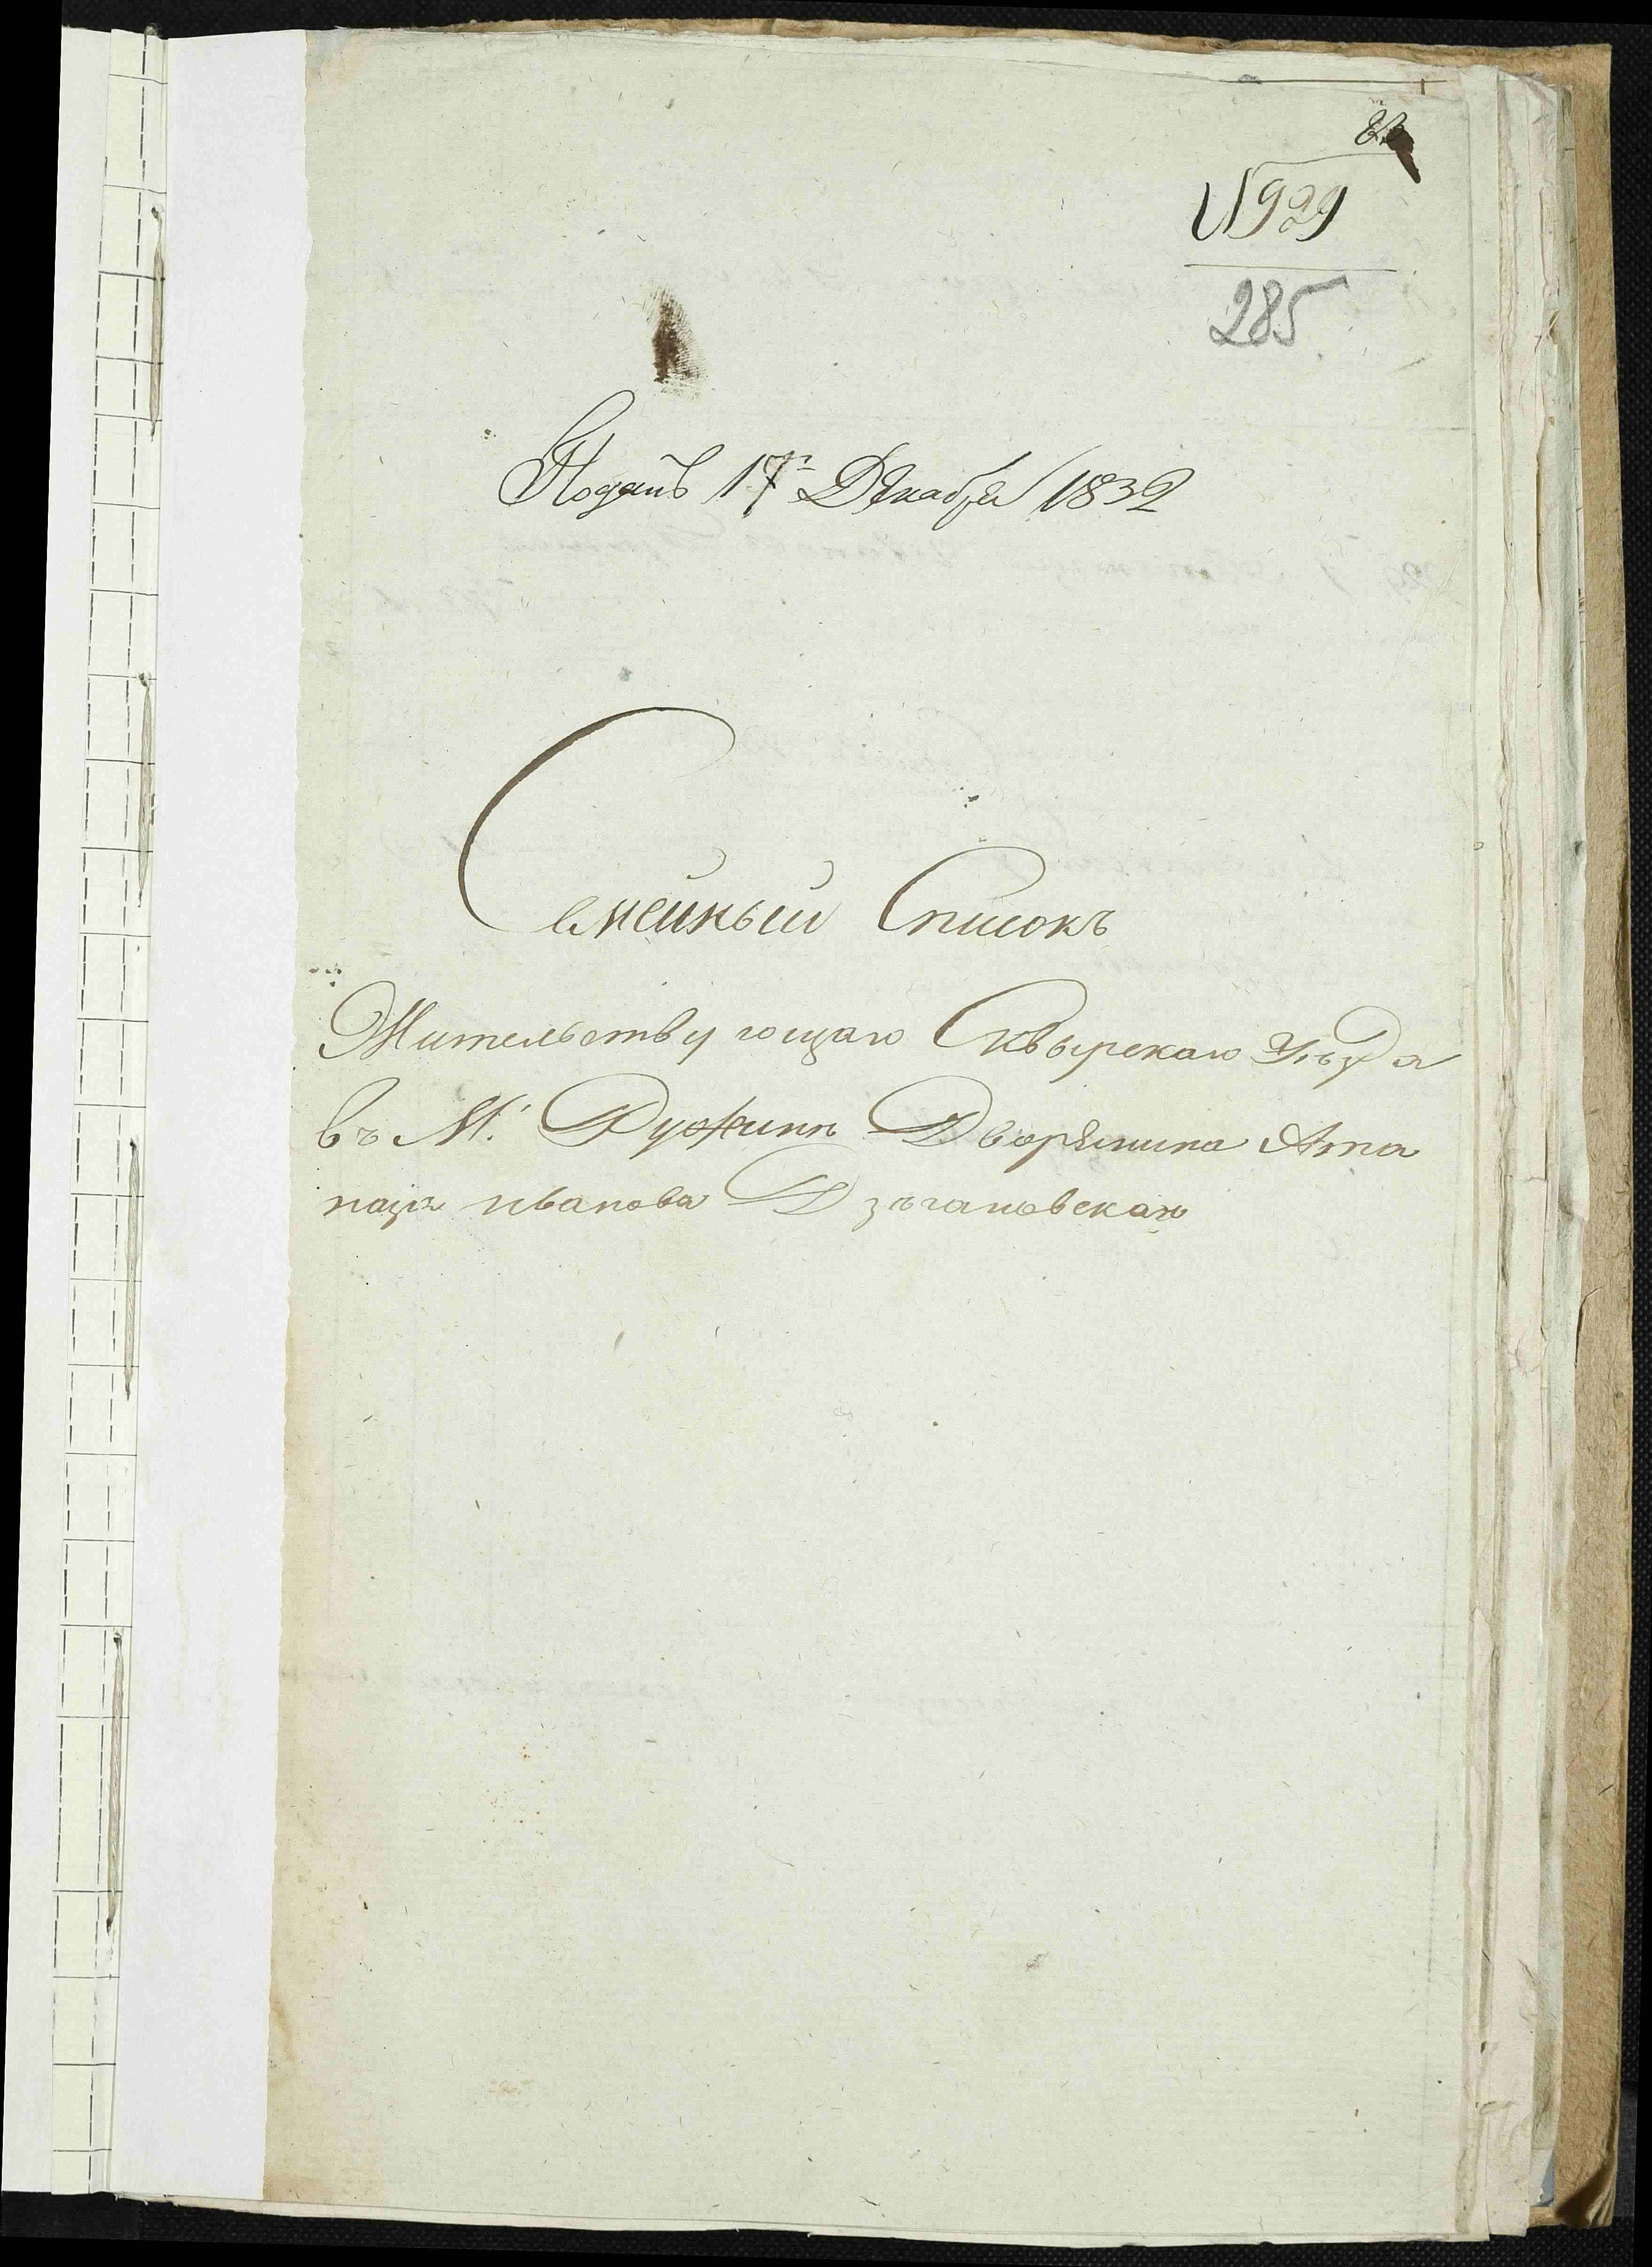 №929
285
Поданъ 17 Декабря 1832
Семейный Списокъ
Жительствующаго Сквырскаго Уезда
въ М. Ружинѣ Дворянина Ата
назія Иванова Дзъгановскаго